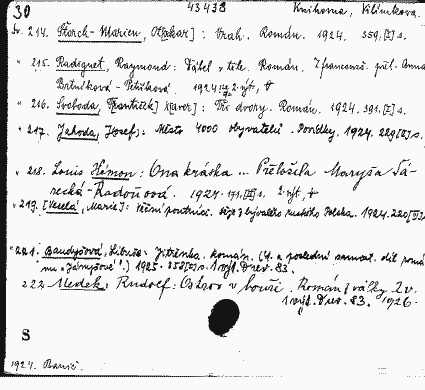 30 43438 Knihovna, Klimkova.
Sv. 214. Štorch-Marien, Ot[akar]: Vrah. Román. 1924. 359, [I] s.
" 215. Radiguet, Raymond: Ďábel v těle. Román. Z franc. přel. Anna
Brtníková-Petříková. 1924 2. výt.
" 216. Svoboda, František X[aver]: Tři dvory. Román. 1924. 391, [I] s.
" 217. Jahoda, Josef: Město 4000 obyvatelů. Povídky. 1924. 229 [I] s.
" 218. Louis Hémon: Ona kráska ... Přeložila Maryša Šá-
recká-Radoňová. 1924. 171, [I] s. 2. výt.
" 219. [Veselá, Marie]: Věční poutníci. 1924. 220
" 221. Baudyšová, Libuše: Jitřenka. Román. (Z a poslední samost. díl romá-
nu "Jármyšové".) 1925. 358 [I] s. 1 výt. Drev. 83.
222 Medek, Rudolf: Ostrov v bouři. Román z války. 2 v.
1 výt. Drev. 83. 1926.
S
1924. Banič.